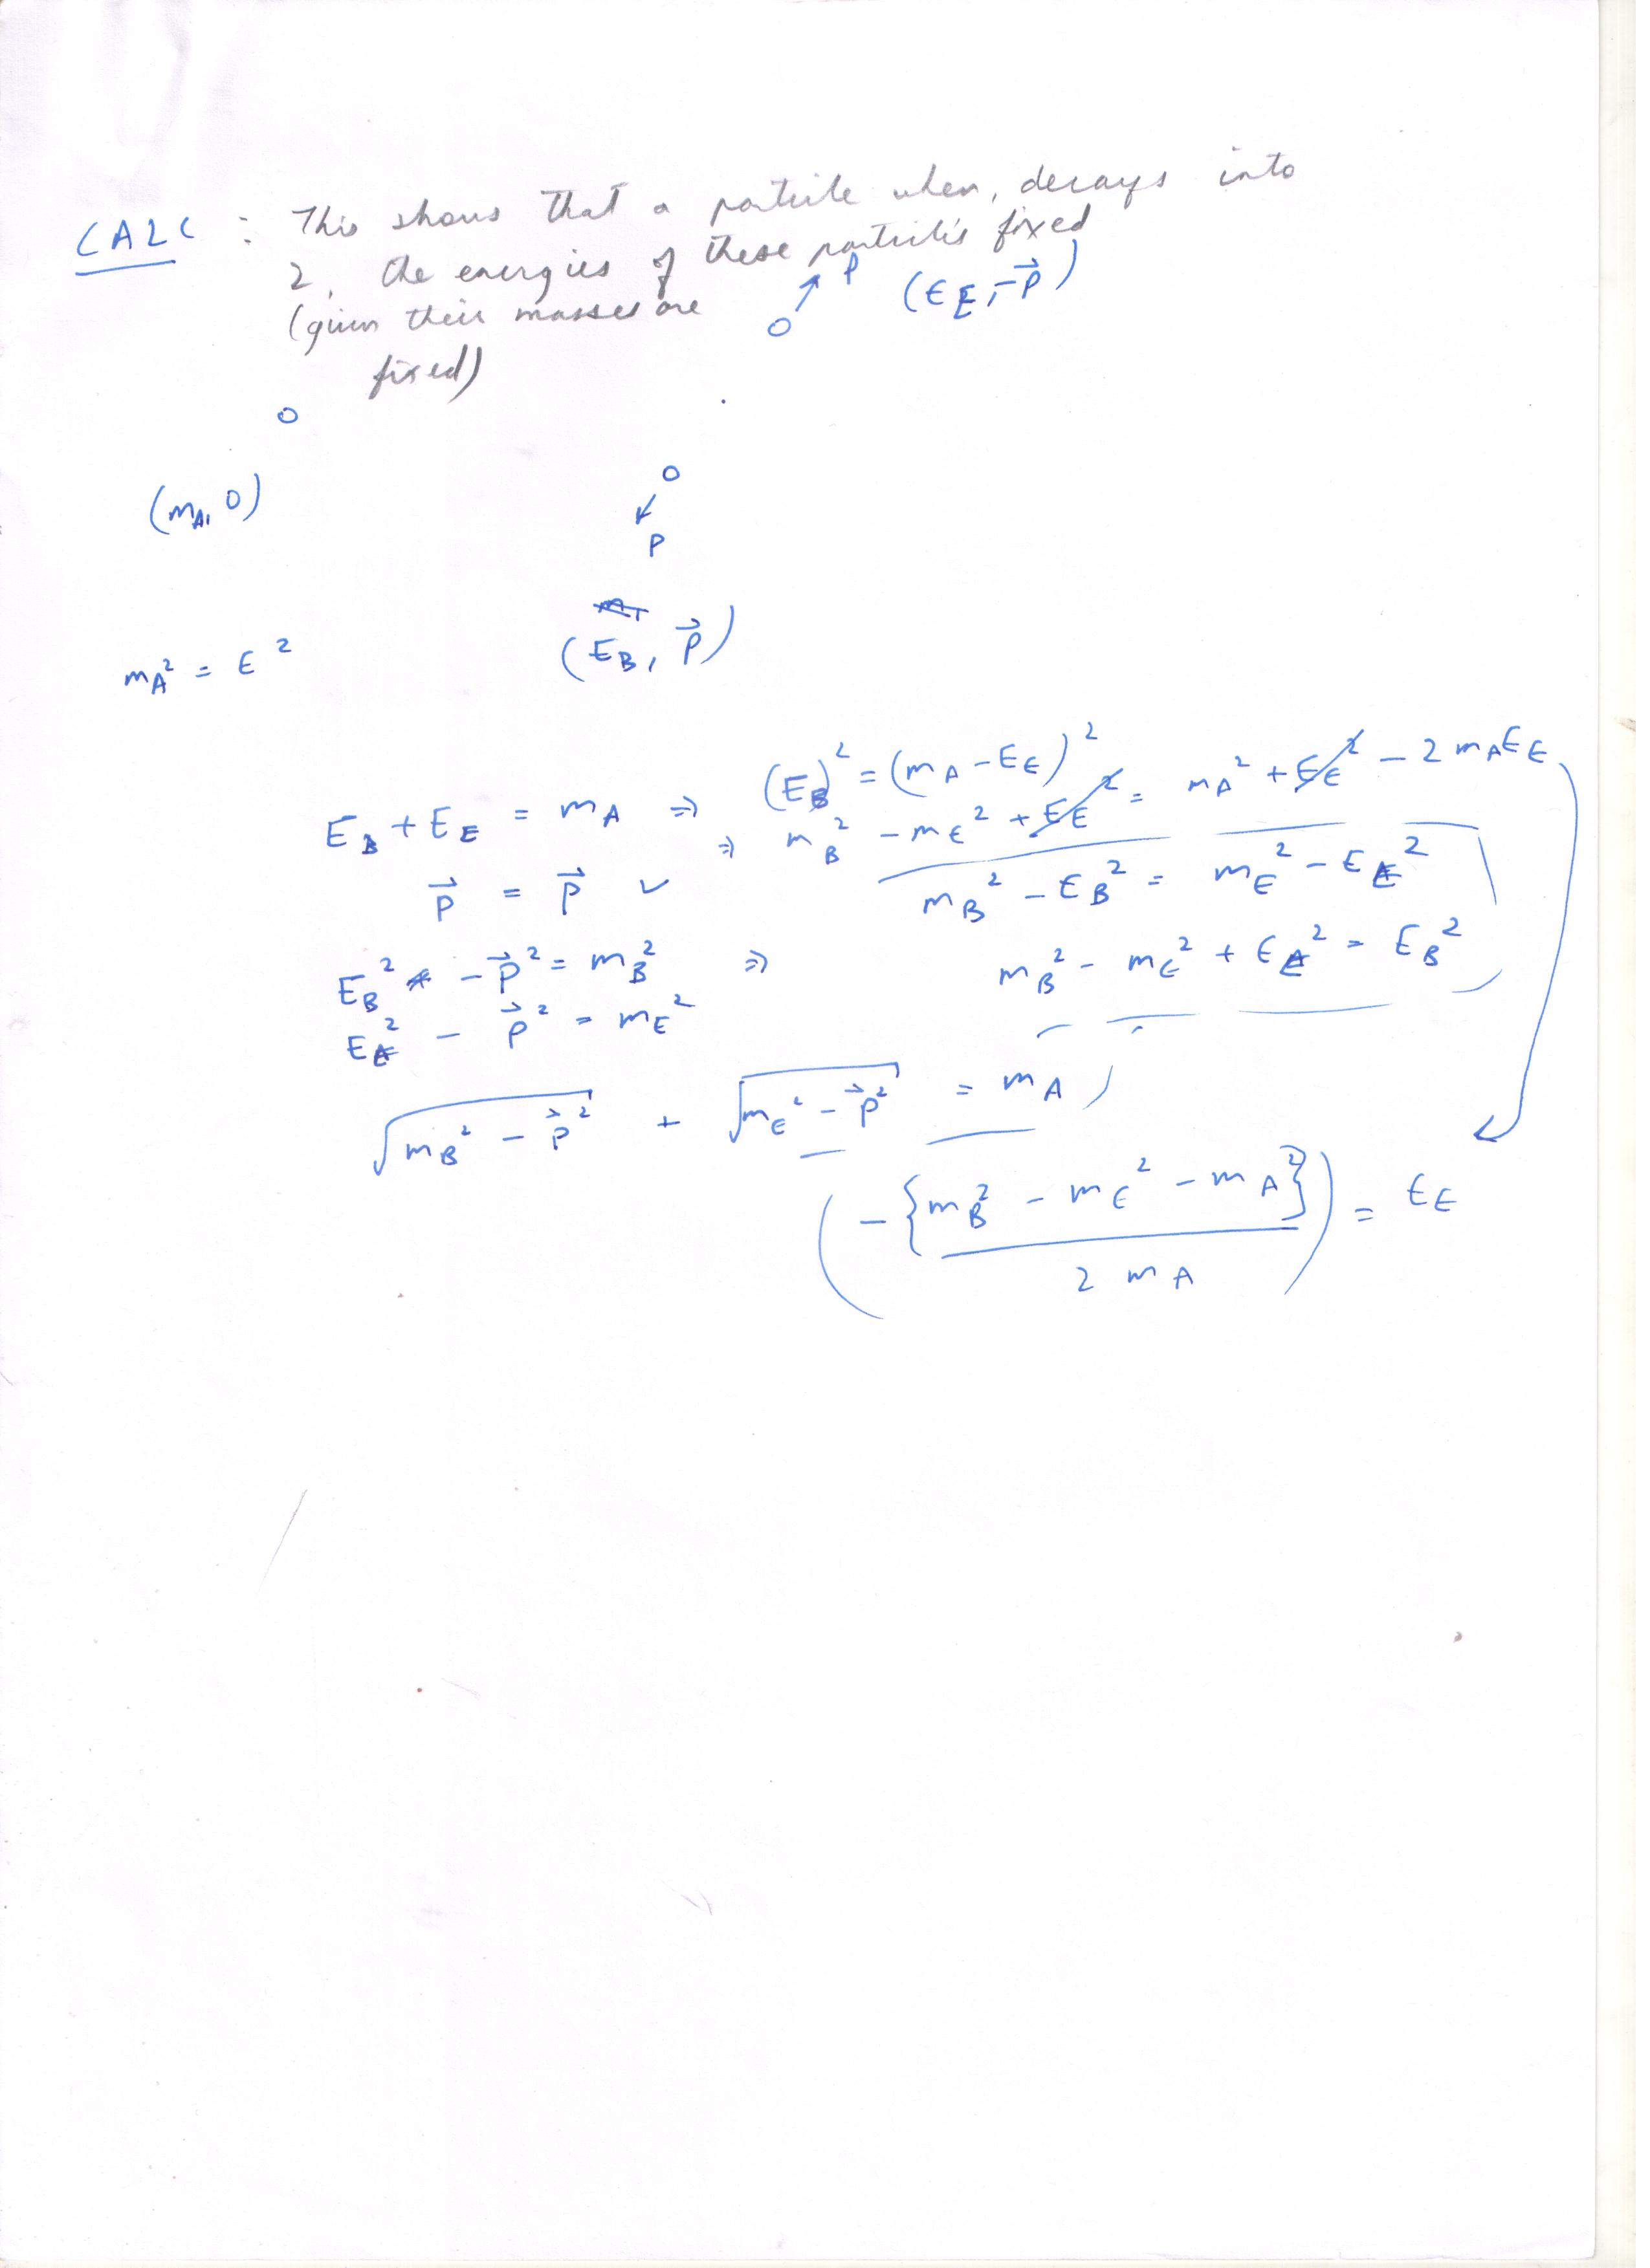 CALC : This shows that a particle when, decays into
2, the energies of these particles fixed
(given their masses are
fixed)
P (E_E, -\vec{P})
(m_A, 0)
P
(E_B, \vec{P})
m_A^2 = E^2
E_B + E_E = m_A ⇒ (E_B)^2 = (m_A - E_E)^2
⇒ m_B^2 - m_E^2 + E_E^2 = m_A^2 + E_E^2 - 2 m_A E_E
\vec{P} = \vec{P} ✓
m_B^2 - E_B^2 = m_E^2 - E_E^2
E_B^2 - \vec{P}^2 = m_B^2 ⇒ m_B^2 - m_E^2 + E_E^2 = E_B^2
E_E^2 - \vec{P}^2 = m_E^2
√(m_B^2 - \vec{P}^2) + √(m_E^2 - \vec{P}^2) = m_A
(-{m_B^2 - m_E^2 - m_A^2} / 2 m_A) = E_E